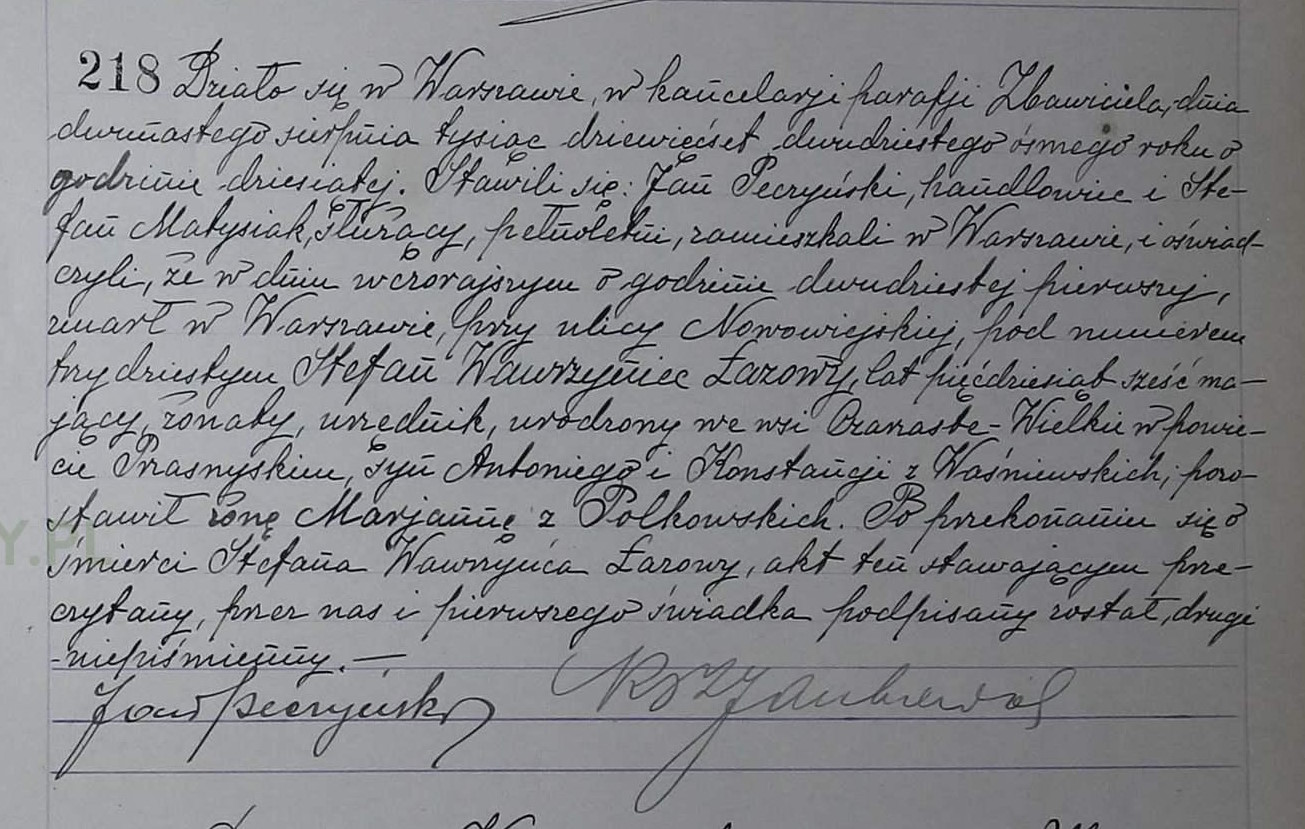 218 Działo się w Warszawie, w kancelarji parafji Zbawiciela, dnia
dwunastego sierpnia tysiąc dziewięćset dwudziestego ósmego roku o
godzinie dziesiątej. Stawili się: Jan Peczyński, handlowiec i Ste-
fan Matysiak, służący, pełnoletni, zamieszkali w Warszawie, i oświad-
czyli, że w dniu wczorajszym o godzinie dwudziestej pierwszej,
zmarł w Warszawie, przy ulicy Nowowiejskiej, pod numerem
trzydziestym Stefan Wawrzyniec Łazowy, lat pięćdziesiąt sześć ma-
jący, żonaty, urzędnik, urodzony we wsi Czarzaste-Wielkie w powie-
cie Prasnyskim, syn Antoniego i Konstancji z Waśniewskich, pozo-
stawił żonę Marjannę z Polkowskich. Po przekonaniu się o
śmierci Stefana Wawrzyńca Łazowy, akt ten stawającym prze-
czytany, przez nas i pierwszego świadka podpisany został, drugi
-niepiśmienny.—
Jan Peczyński
Y.PL